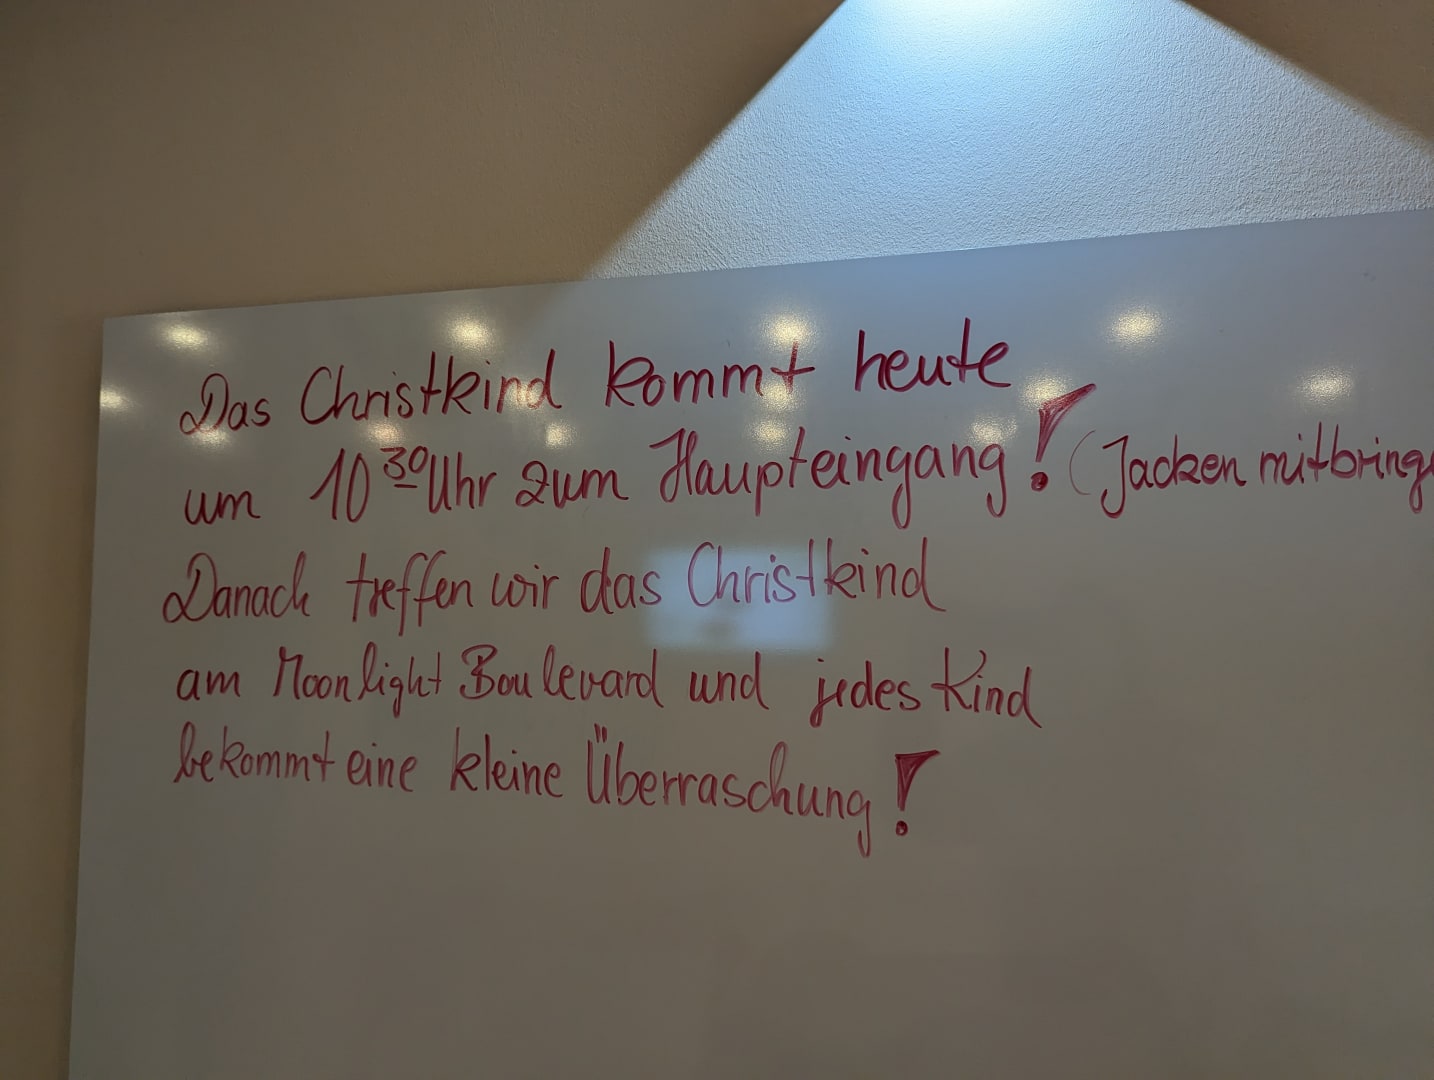 Das Christkind kommt heute
um 10³⁰ Uhr zum Haupteingang! (Jacken mitbring
Danach treffen wir das Christkind
am Moonlight Boulevard und jedes Kind
bekommt eine kleine Überraschung!